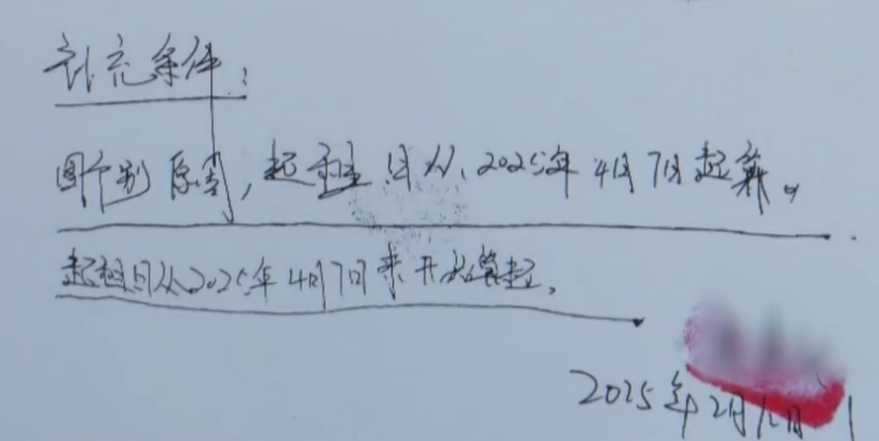 补充条件:
因个别原因,起租日从2025年4月7日起算。
起租日从2025年4月7日来开始算起。
2025年2月12日